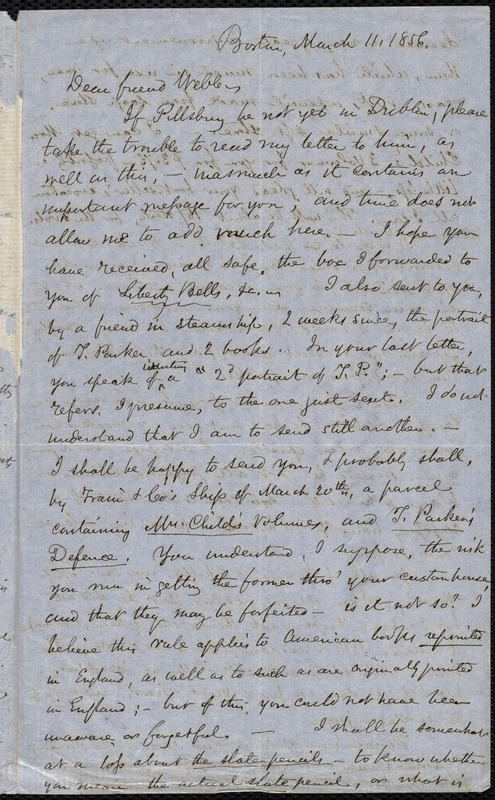 Boston, March 11, 1856.
Dear friend Webb,
If Pillsbury be not yet in Dublin, please
take the trouble to read my letter to him, as
well as this, — inasmuch as it contains an
important message for you; and time does not
allow me to add much here. — I hope you
have received, all safe, the box I forwarded to
you of Liberty Bells, &c. I also sent to you,
by a friend in steamship, 2 weeks since, the portrait
of T. Parker and 2 books. In your last letter,
you speak of wanting a "2d portrait of T. P."; — but that
refers, I presume, to the one just sent. I do not
understand that I am to send still another. —
I shall be happy to send you, & probably shall,
by Train & Co's Ship of March 20th, a parcel
containing Mrs. Child's volumes, and T. Parker's
Defence. You understand, I suppose, the risk
you run in getting the former thro' your customhouse,
and that they may be forfeited — is it not so? I
believe this rule applies to American books reprinted
in England, as well as to such as are originally printed
in England; — but of this you could not have been
unaware, or forgetful. — I shall be somewhat
at a loss about the slate pencils — to know whether
you mean the actual slate pencil, or what is